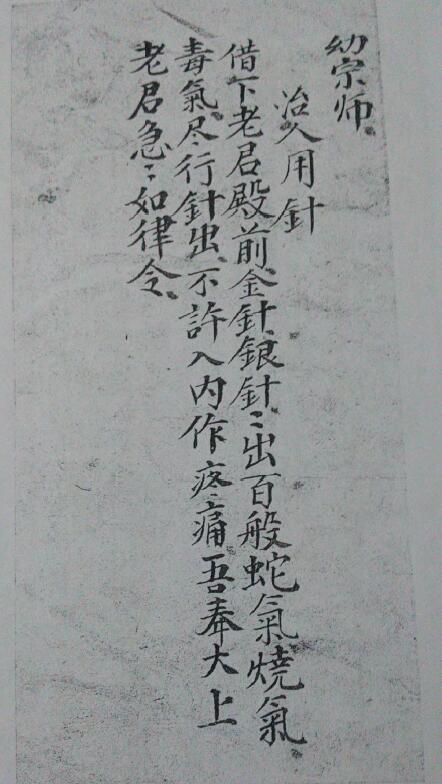 幼宗师
治人用針
借下老君殿前金針銀針〻出百般蛇氣燒氣
毒氣尽行針出不許入内作疼痛吾奉大上
老君急〻如律令